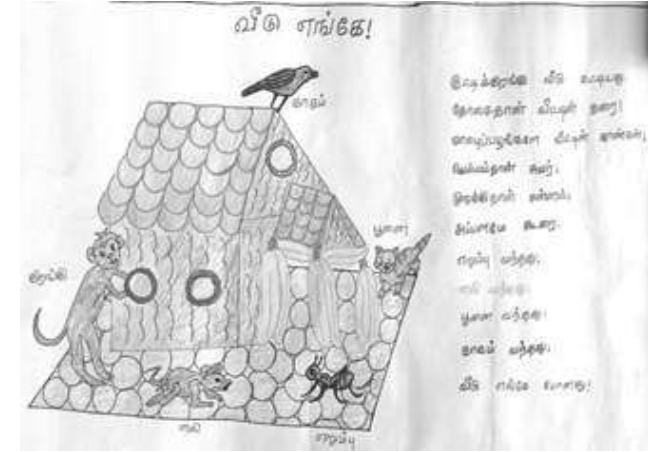 வீடு எங்கே!
காகம்
பூனை
குரங்கு
எலி
எறும்பு
வீடு கட்டியது
தோசைதான் வீட்டின் தரை!
வாழைப்பழங்களே வீட்டின் தூண்கள்;
சுவர்;
அப்பளமே கூரை.
எறும்பு வந்தது;
எலி வந்தது;
பூனை வந்தது;
காகம் வந்தது;
வீடு எங்கே போனது!